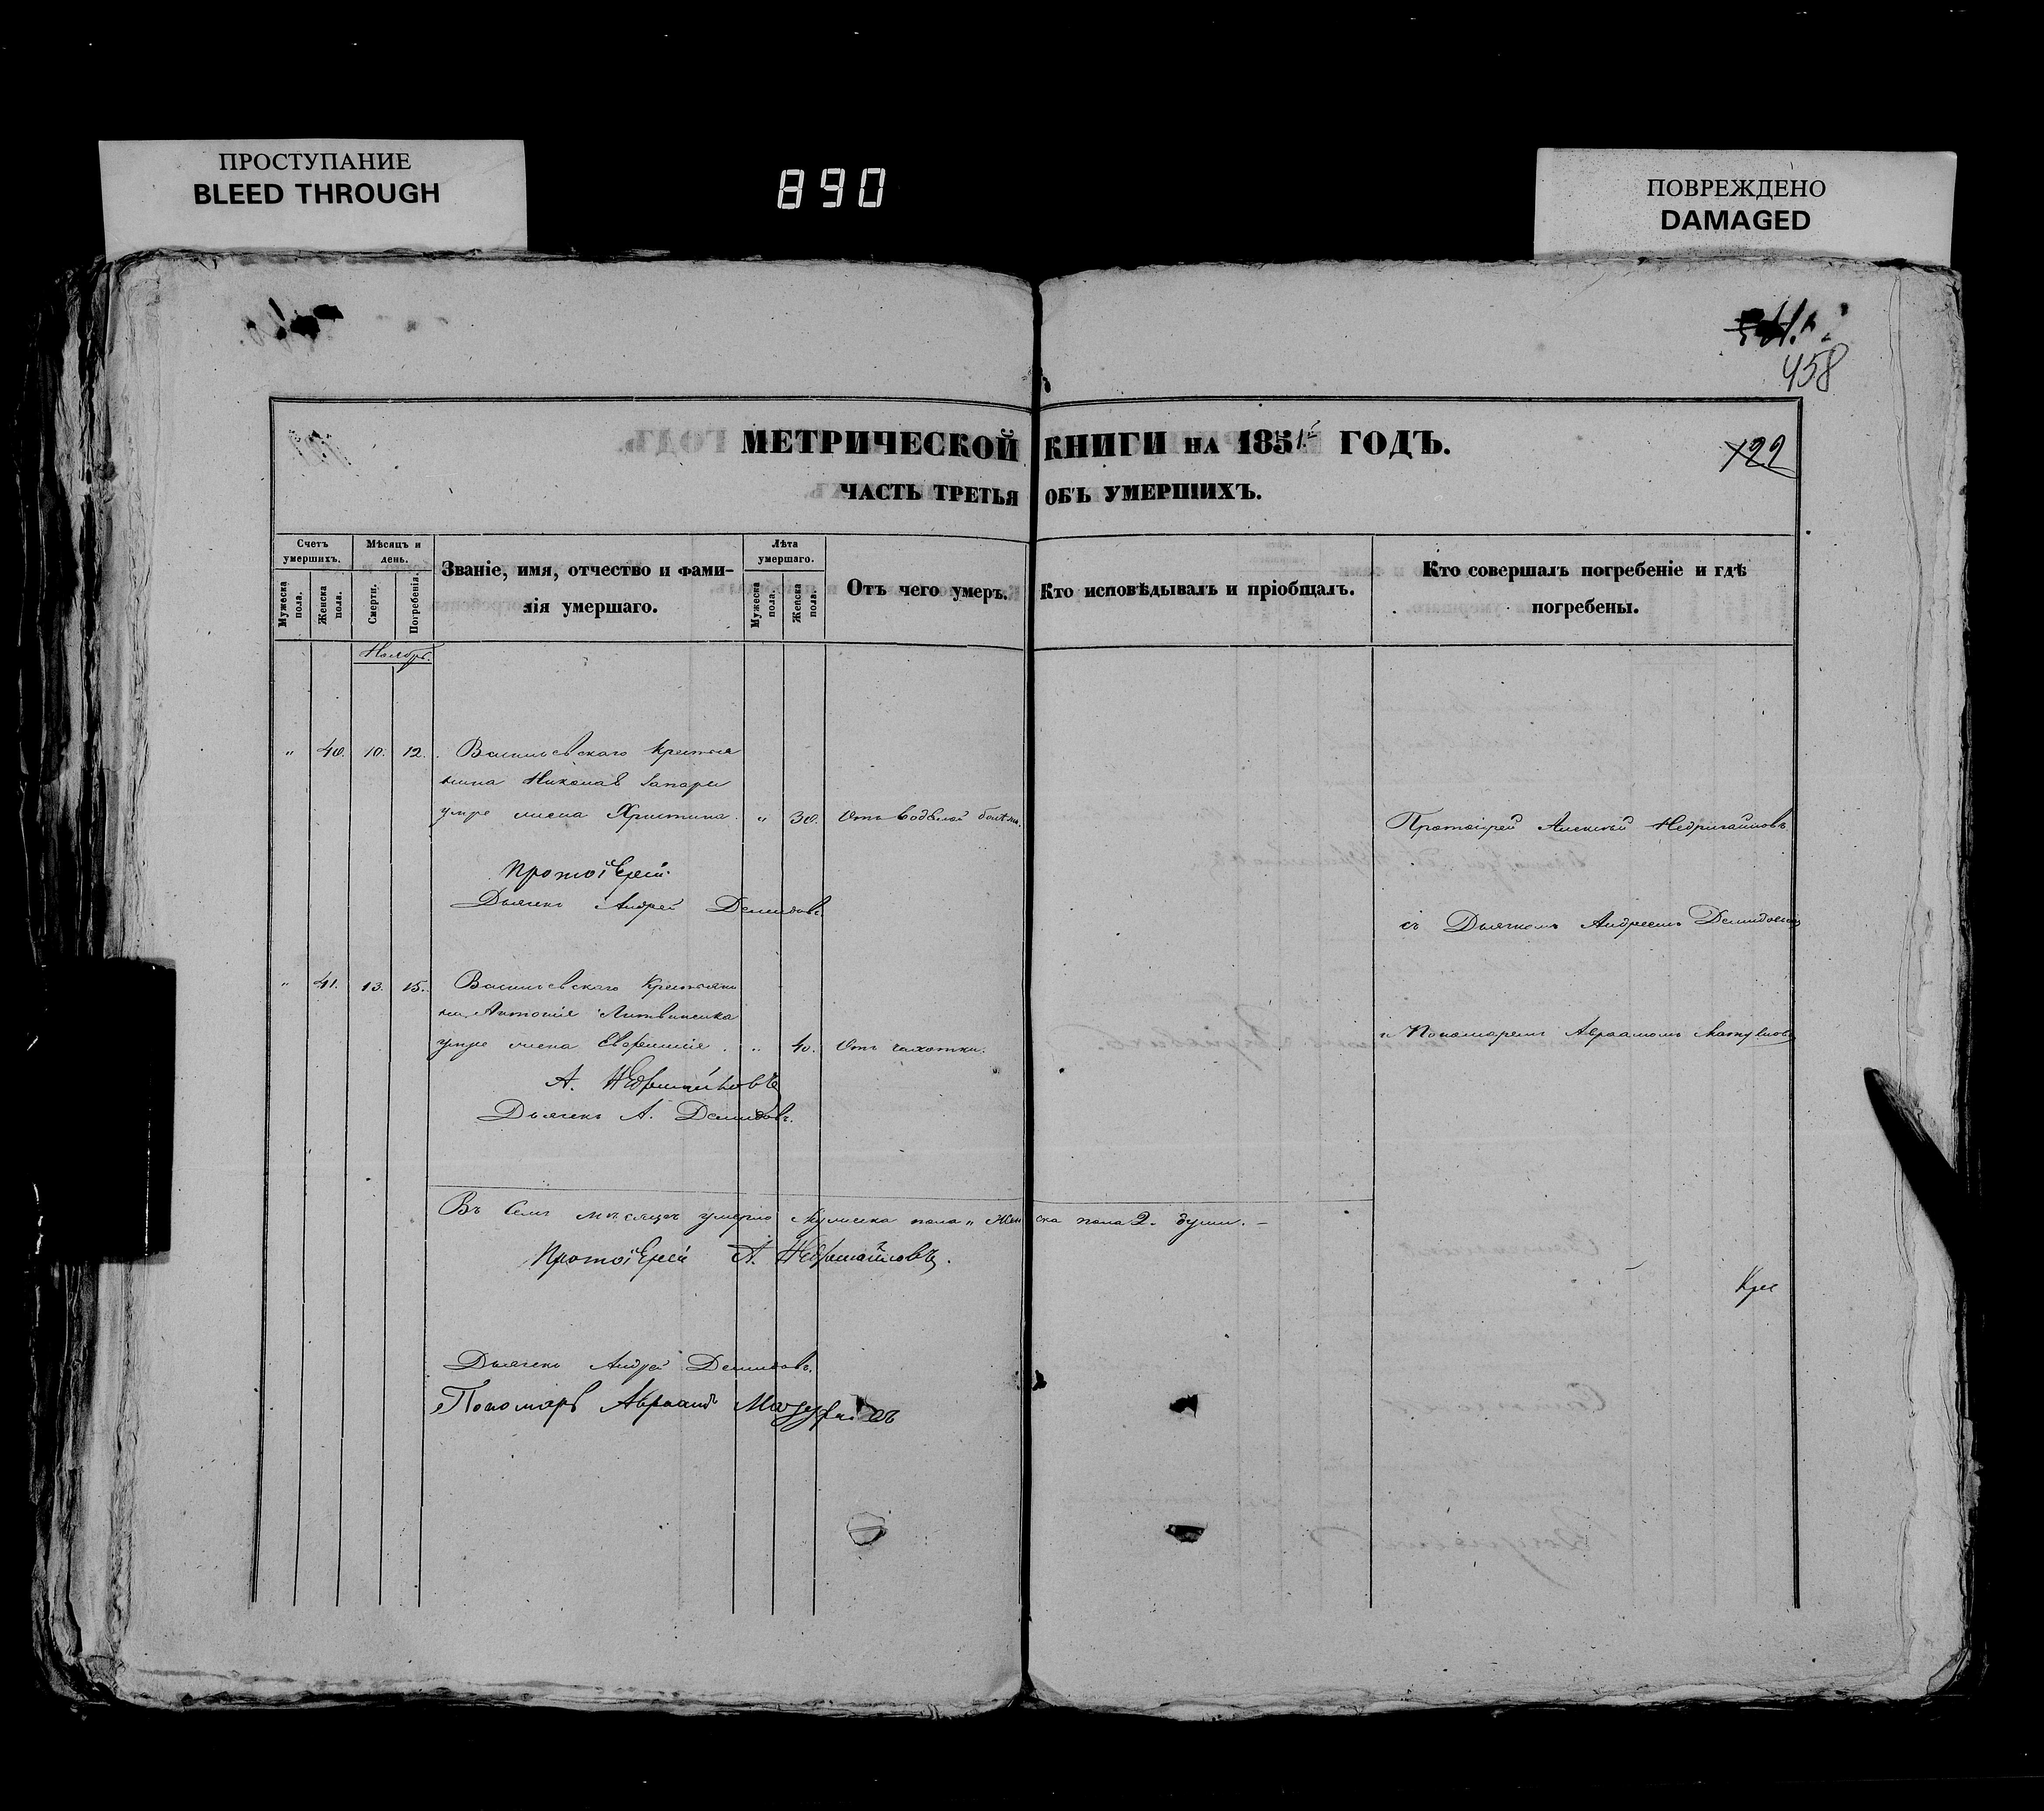 ПРОСТУПАНИЕ
BLEED THROUGH
890
ПОВРЕЖДЕНО
DAMAGED
458
МЕТРИЧЕСКОЙ КНИГИ НА 1851 ГОДЪ.
122
ЧАСТЬ ТРЕТЬЯ ОБЪ УМЕРШИХЪ.
Счетъ умершихъ.
Мужеска пола.
Женска пола.
Мѣсяцъ и день.
Смерти.
Погребенія.
Званіе, имя, отчество и фами-
лія умершаго.
Лѣта умершаго.
Мужеска пола.
Женска пола.
Отъ чего умеръ.
Кто исповѣдывалъ и пріобщалъ.
Кто совершалъ погребеніе и гдѣ
погребены.
Ноябрь.
" 40. 10. 12. Васильевскаго Крестья
нина Николая
умре жена Христина. " 30. Отъ водяной болѣзн.
Протоіерей Алексѣй
Протоіерей
Дьячекъ Андрей Демидовъ
съ Дьячкомъ Андреемъ Демидовымъ
" 41. 13. 15. Васильевскаго Крестьяни
на Антонія Литвиненка
умре жена Евфимія. " 40. Отъ чахотки.
и Пономаремъ Авраамомъ
А.
Дьячекъ А. Демидовъ.
Въ семъ мѣсяцѣ умерло мужеска пола " женска пола 2. души. –
Протоіерей А.
Дьячекъ Андрей Демидовъ.
Пономарь Авраамъ